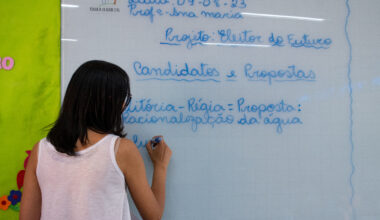 09-08-23
Profª Ana maria
Projeto: Eleitor do Futuro
Candidatos e Propostas
itória-Régia = Proposta:
acionalização da água